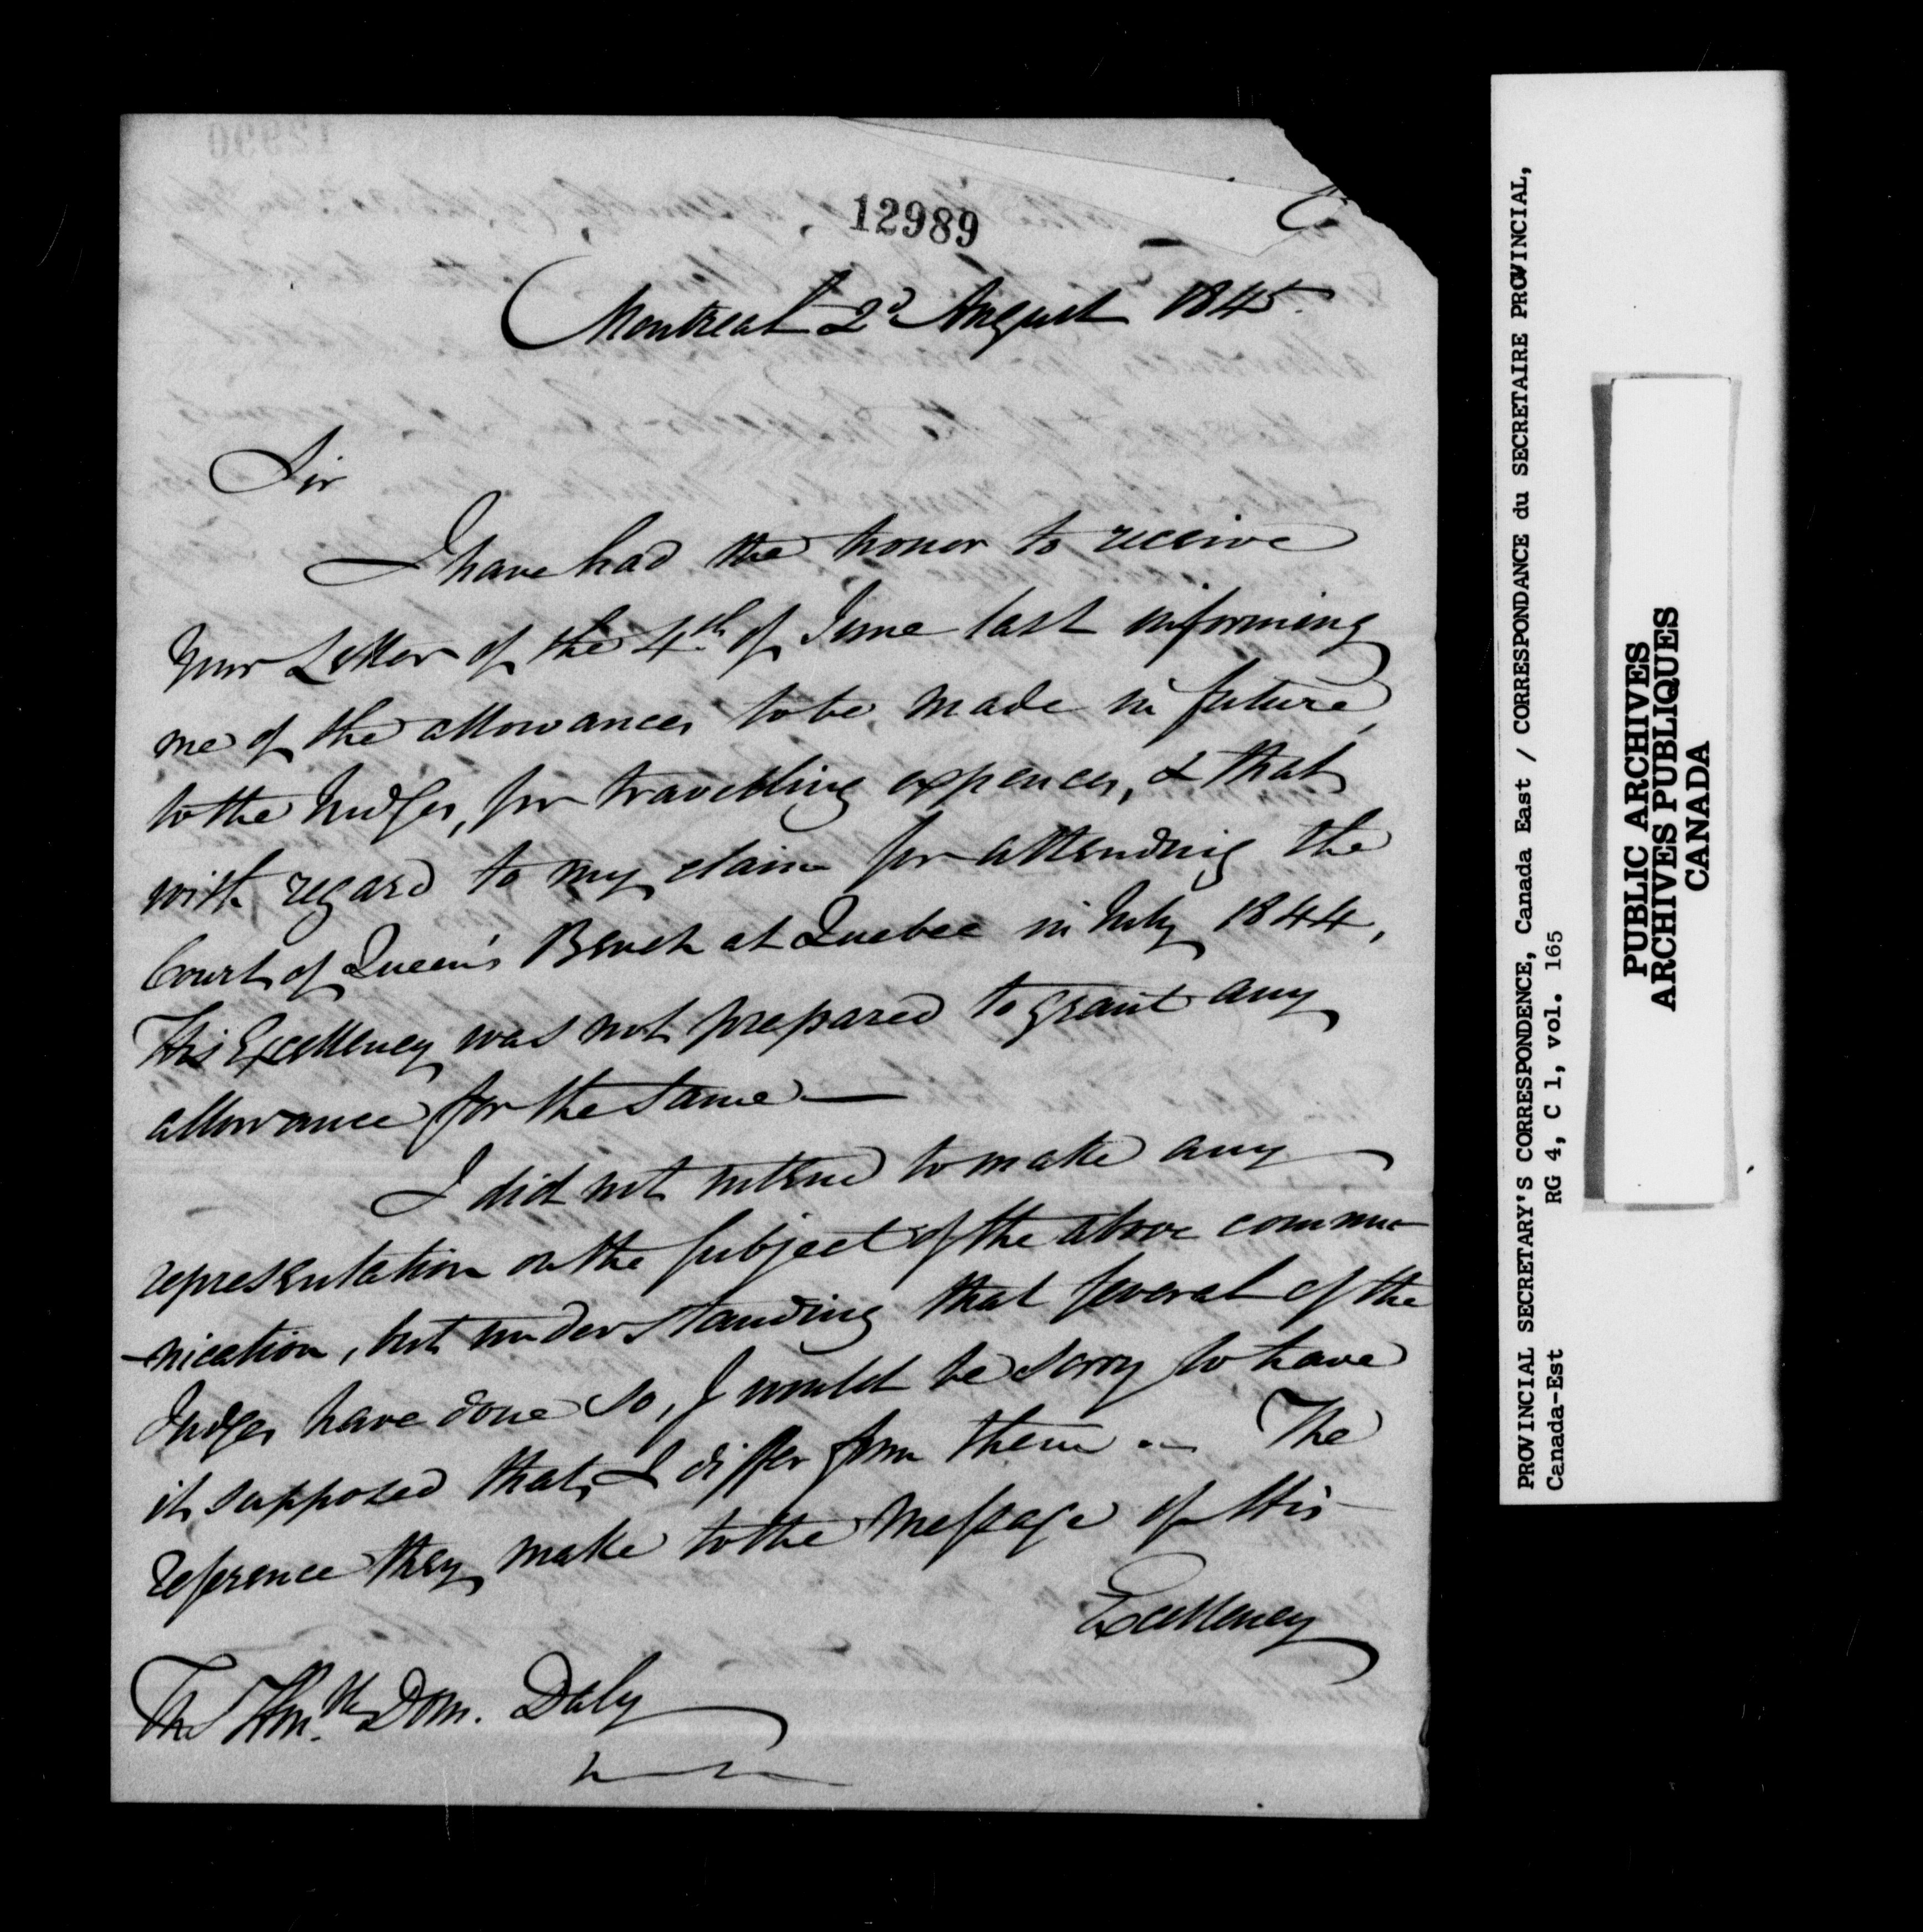 12989
Montreal 2d August 1845.
Sir
I have had the honor to receive
your Letter of the 4th of June last informing
me of the allowances to be made in future,
to the Judges, for travelling expences, & that
with regard to my claim for attending the
Court of Queen's Bench at Quebec in July 1844,
His Excellency was not prepared to grant any
allowance for the same —
I did not intend to make any
representation on the subject of the above commu-
-nication, but understanding that several of the
Judges have done so, I would be sorry to have
it supposed that I differ from them — The
reference they make to the Message of His
Excellency
The Honble Dom. Daly
PROVINCIAL SECRETARY'S CORRESPONDENCE, Canada East / CORRESPONDANCE du SECRETAIRE PROVINCIAL,
Canada-Est RG 4, C 1, vol. 165
PUBLIC ARCHIVES
ARCHIVES PUBLIQUES
CANADA